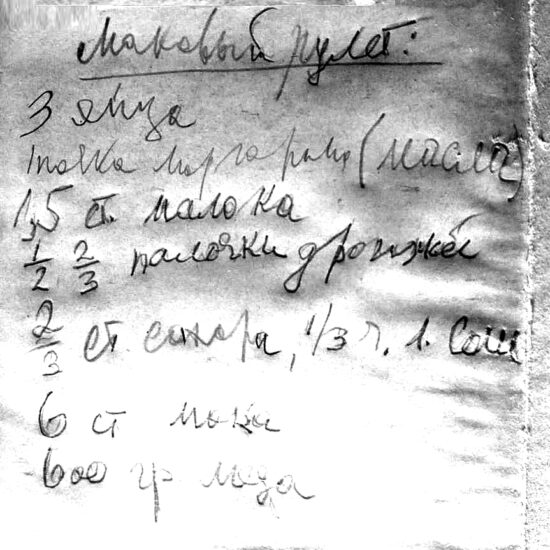 Маковый рулет:
3 яйца
1 пачка маргарина (масла)
1,5 ст. малока
1/2 2/3 палочки дрожжей
2/3 ст. сахара, 1/3 ч. л. соли
6 ст муки
600 гр меда